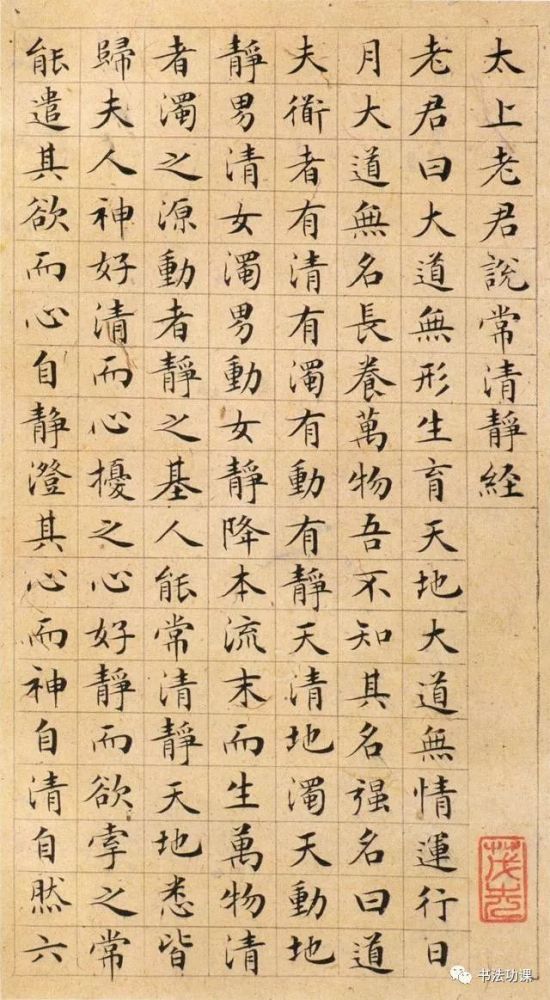 太上老君說常清靜経
老君曰大道無形生育天地大道無情運行日
月大道無名長養萬物吾不知其名强名曰道
夫衜者有清有濁有動有靜天清地濁天動地
靜男清女濁男動女靜降本流末而生萬物清
者濁之源動者靜之基人能常清靜天地悉皆
歸夫人神好清而心擾之心好靜而欲牽之常
能遣其欲而心自静澄其心而神自清自然六
书法功课